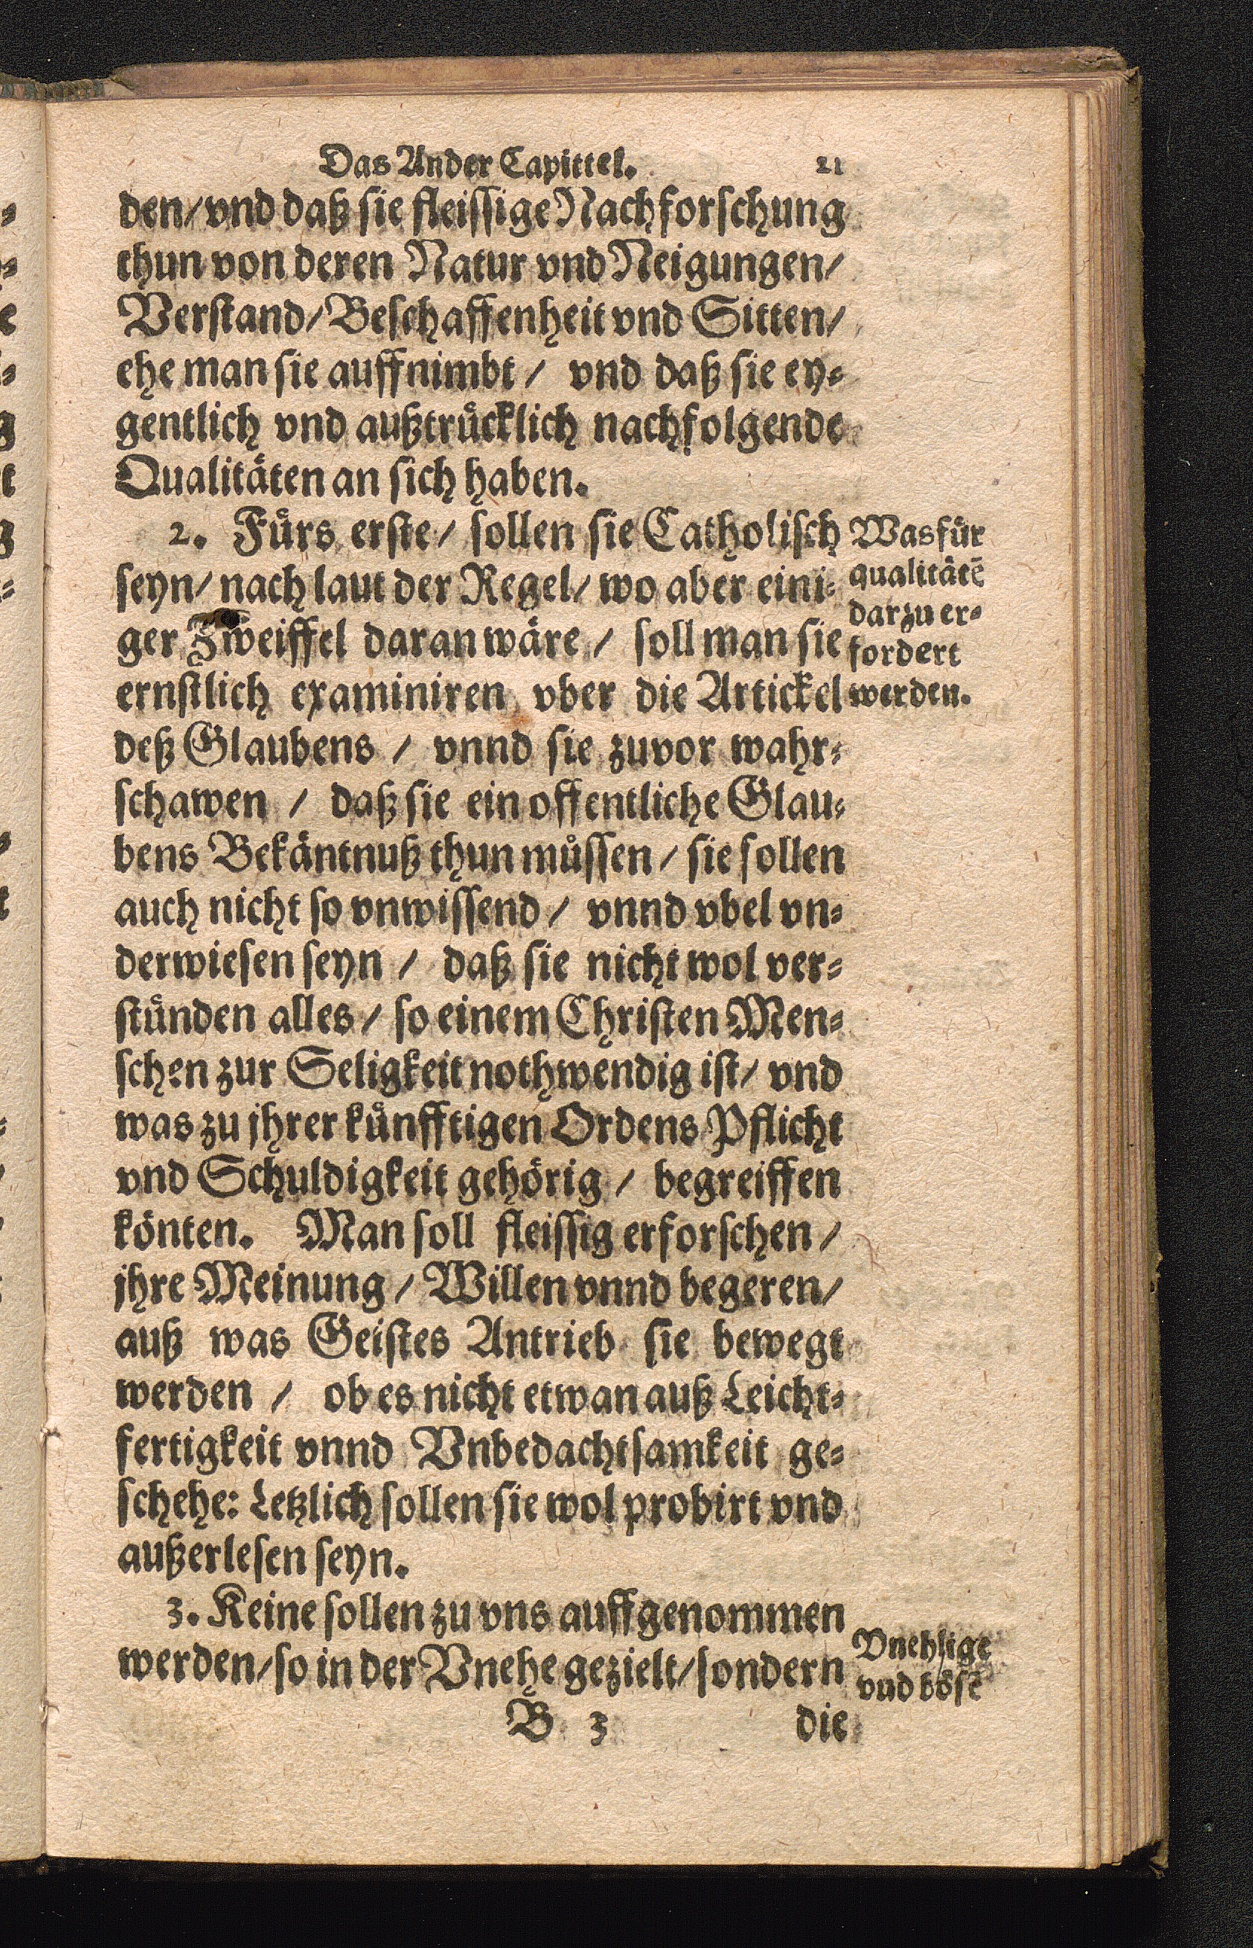 Das Ander Capittel. 21
den/vnd daß sie fleissige Nachforschung
thun von deren Natur vnd Neigungen/
Verstand/Beschaffenheit vnd Sitten/
ehe man sie auffnimbt / vnd daß sie ey-
gentlich vnd außtrücklich nachfolgende
Qualitäten an sich haben.
2. Fürs erste/ sollen sie Catholisch
seyn/ nach laut der Regel/ wo aber eini-
ger Zweiffel daran wäre / soll man sie
ernstlich examiniren vber die Artickel
deß Glaubens / vnnd sie zuvor wahr-
schawen / daß sie ein offentliche Glau-
bens Bekäntnuß thun müssen / sie sollen
auch nicht so vnwissend / vnnd vbel vn-
derwiesen seyn / daß sie nicht wol ver-
stünden alles / so einem Christen Men-
schen zur Seligkeit nothwendig ist/ vnd
was zu jhrer künfftigen Ordens Pflicht
vnd Schuldigkeit gehörig / begreiffen
könten. Man soll fleissig erforschen /
jhre Meinung / Willen vnnd begeren/
auß was Geistes Antrieb sie bewegt
werden / ob es nicht etwan auß Leicht-
fertigkeit vnnd Vnbedachtsamkeit ge-
schehe: Letzlich sollen sie wol probirt vnd
außerlesen seyn.
3. Keine sollen zu vns auffgenommen
werden/so in der Vnehe gezielt/sondern
B 3 die
Was für
qualitätē
darzu er-
fordert
werden.
Vnehlige
vnd bösē